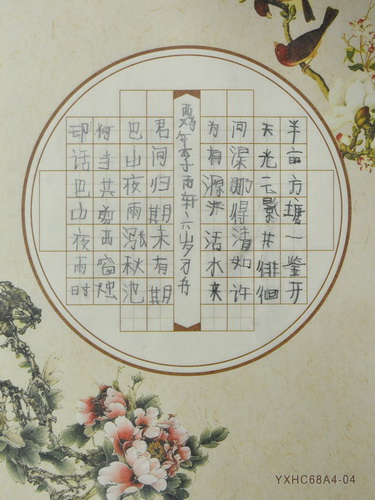 半亩方塘一鉴开
天光云影共徘徊
问深哪得清如许
为有源头活水来
年李雨轩六岁
君问归期未有期
巴山夜雨涨秋池
何当共剪西窗烛
却话巴山夜雨时
YXHC68A4-04